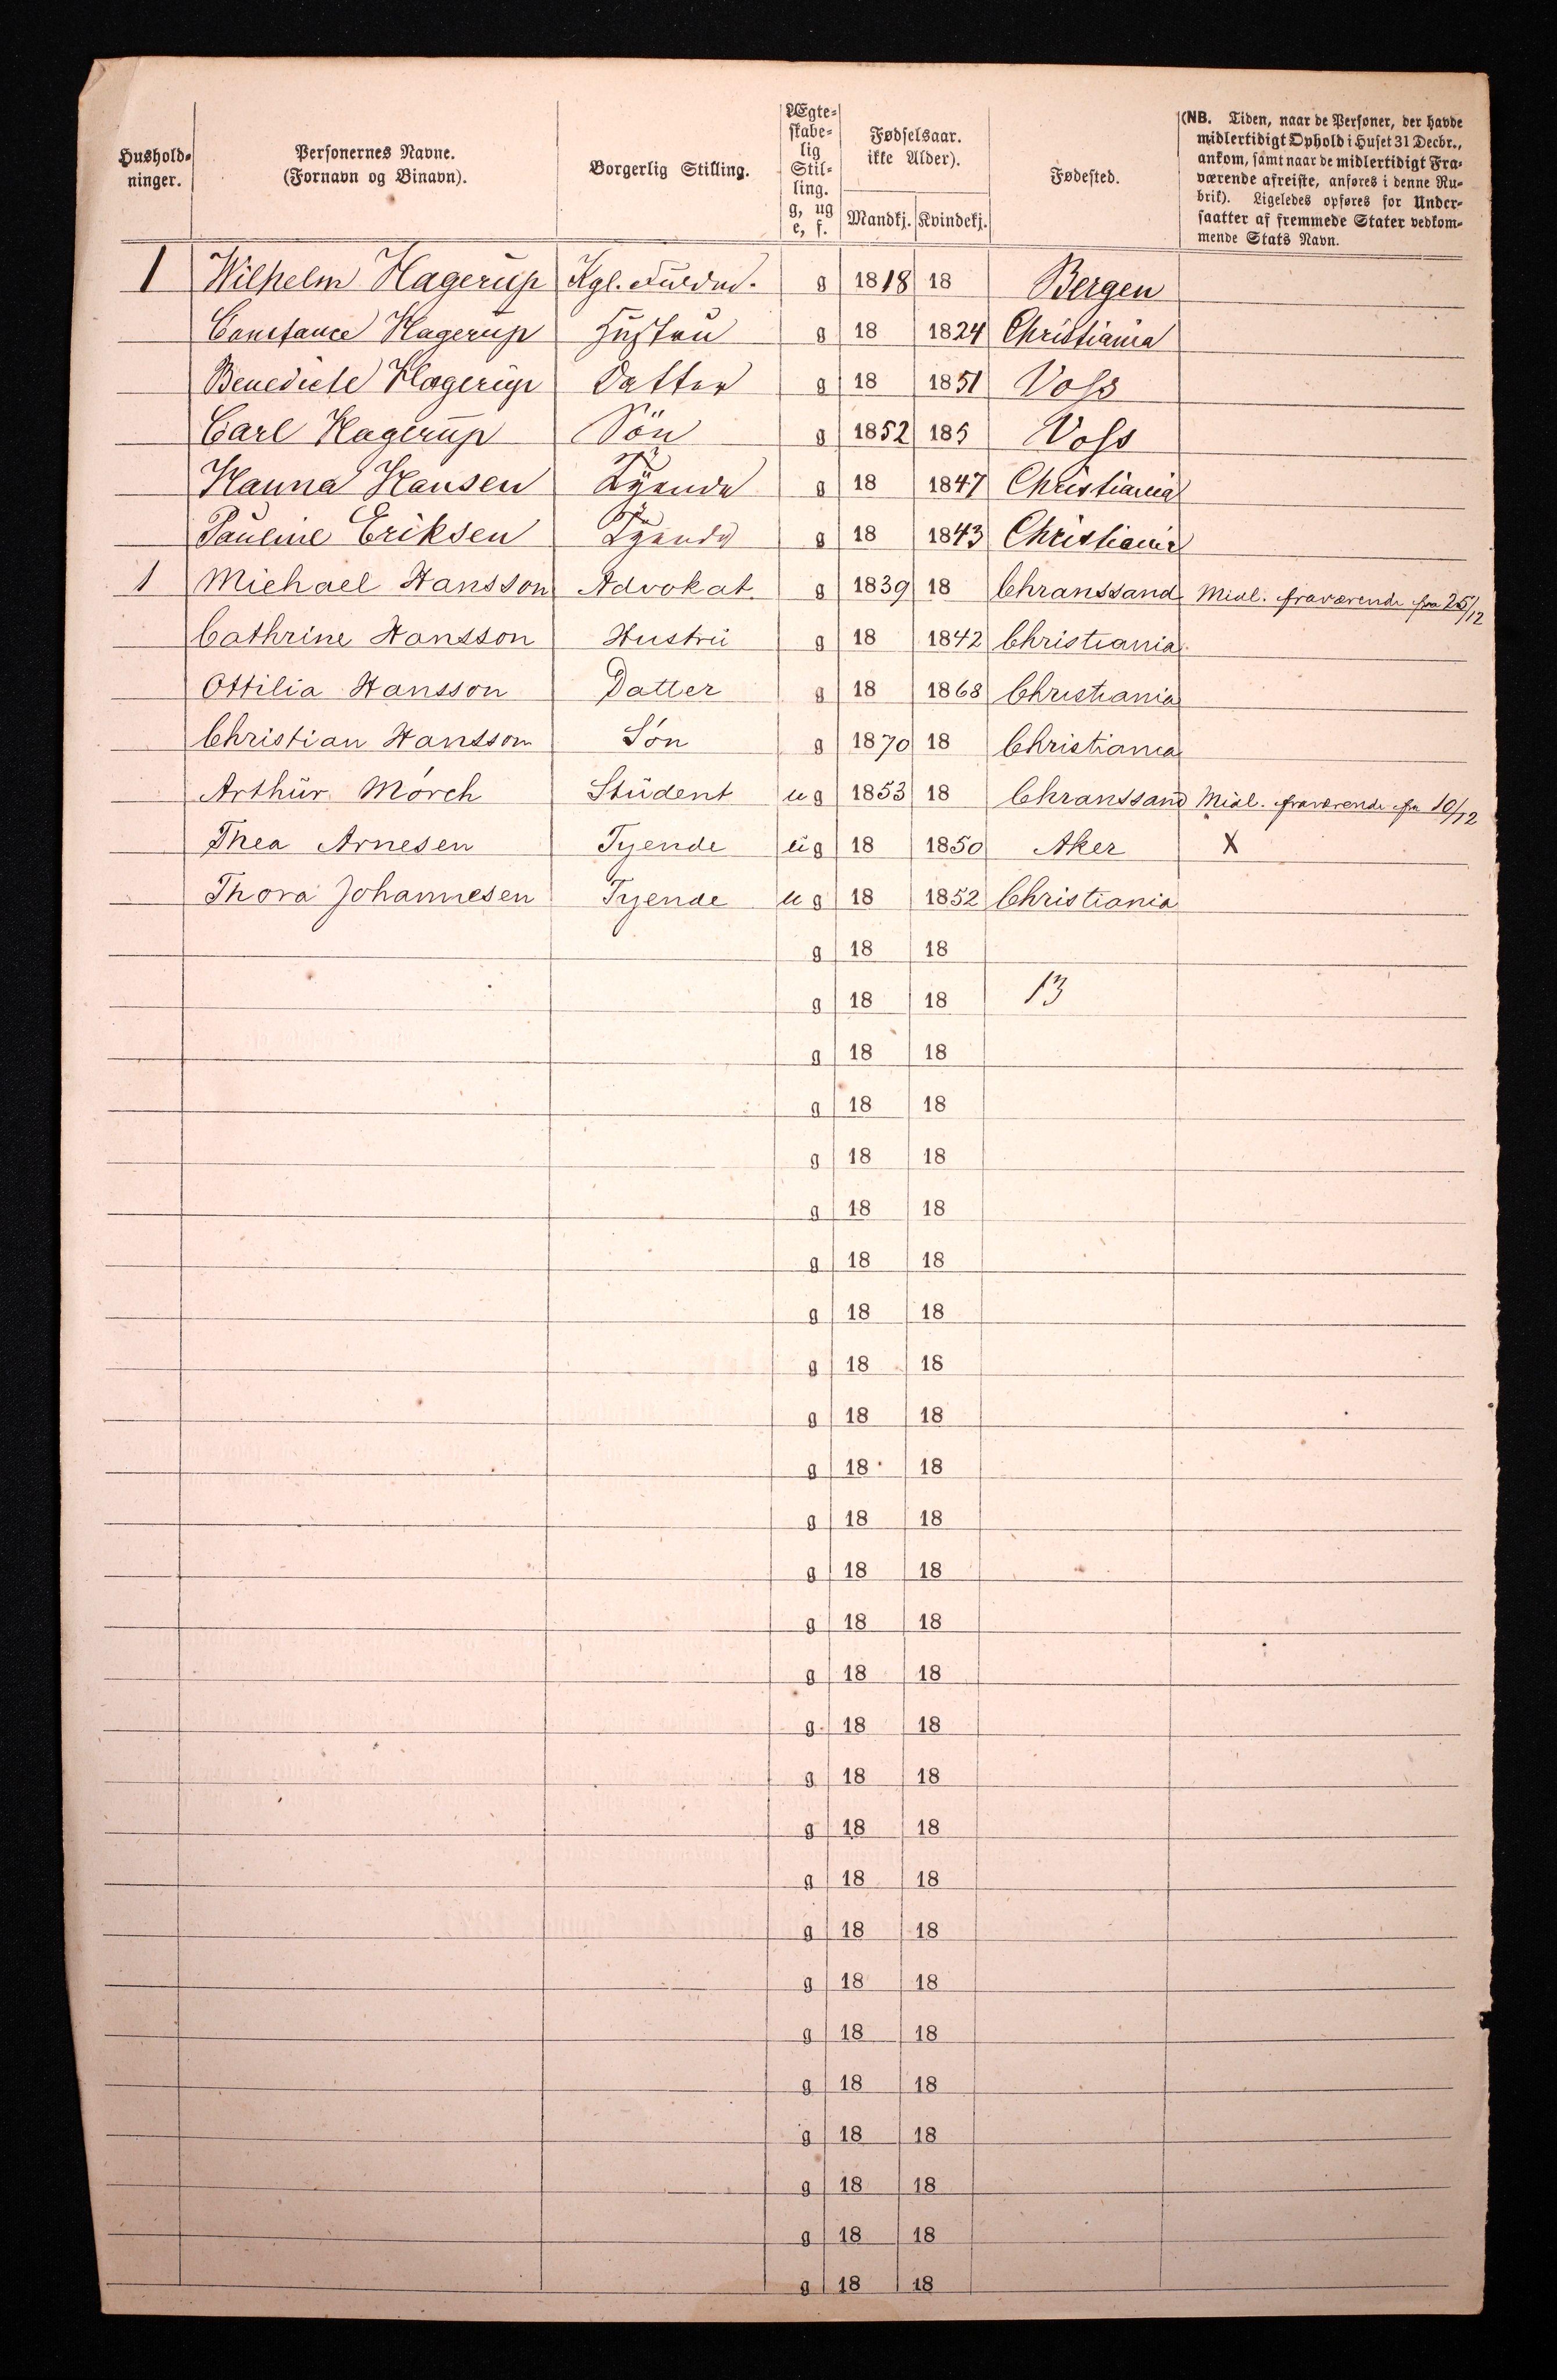 Hushold-
ninger.
Personernes Navne.
(Fornavn og Binavn).
Borgerlig Stilling.
Ægte-
skabe-
lig
Stil-
ling.
g, ug
e, f.
Fødselsaar.
ikke Alder).
Mandkj. Kvindekj.
Fødested.
(NB. Tiden, naar de Personer, der havde
midlertidigt Ophold i Huset 31 Decbr.,
ankom, samt naar de midlertidigt Fra-
værende afreiste, anføres i denne Ru-
brik). Ligeledes opføres for Under-
saatter af fremmede Stater vedkom-
mende Stats Navn.
1 Wilhelm Hagerup Kgl. g 1818 18 Bergen
Constance Hagerup Hustru g 18 1824 Christiania
Benedicte Hagerup Datter g 18 1851 Voss
Carl Hagerup Sön g 1852 185 Voss
Hanna Hansen Tyende g 18 1847 Christiania
Pauline Eriksen Tyende g 18 1843 Christiania
1 Michael Hansson Advokat. g 1839 18 Chranssand Midl. fraværende fra 25/12
Cathrine Hansson Hustru g 18 1842 Christiania
Ottilia Hansson Datter g 18 1868 Christiania
Christian Hansson Són g 1870 18 Christiania
Arthur Mórch Student u g 1853 18 Chranssand Midl. fraværende fra 10/12
Thea Arnesen Tyende u g 18 1850 Aker X
Thora Johannesen Tyende u g 18 1852 Christiania
g 18 18
g 18 18 13
g 18 18
g 18 18
g 18 18
g 18 18
g 18 18
g 18 18
g 18 18
g 18 18
g 18 18
g 18 18
g 18 18
g 18 18
g 18 18
g 18 18
g 18 18
g 18 18
g 18 18
g 18 18
g 18 18
g 18 18
g 18 18
g 18 18
g 18 18
g 18 18
g 18 18